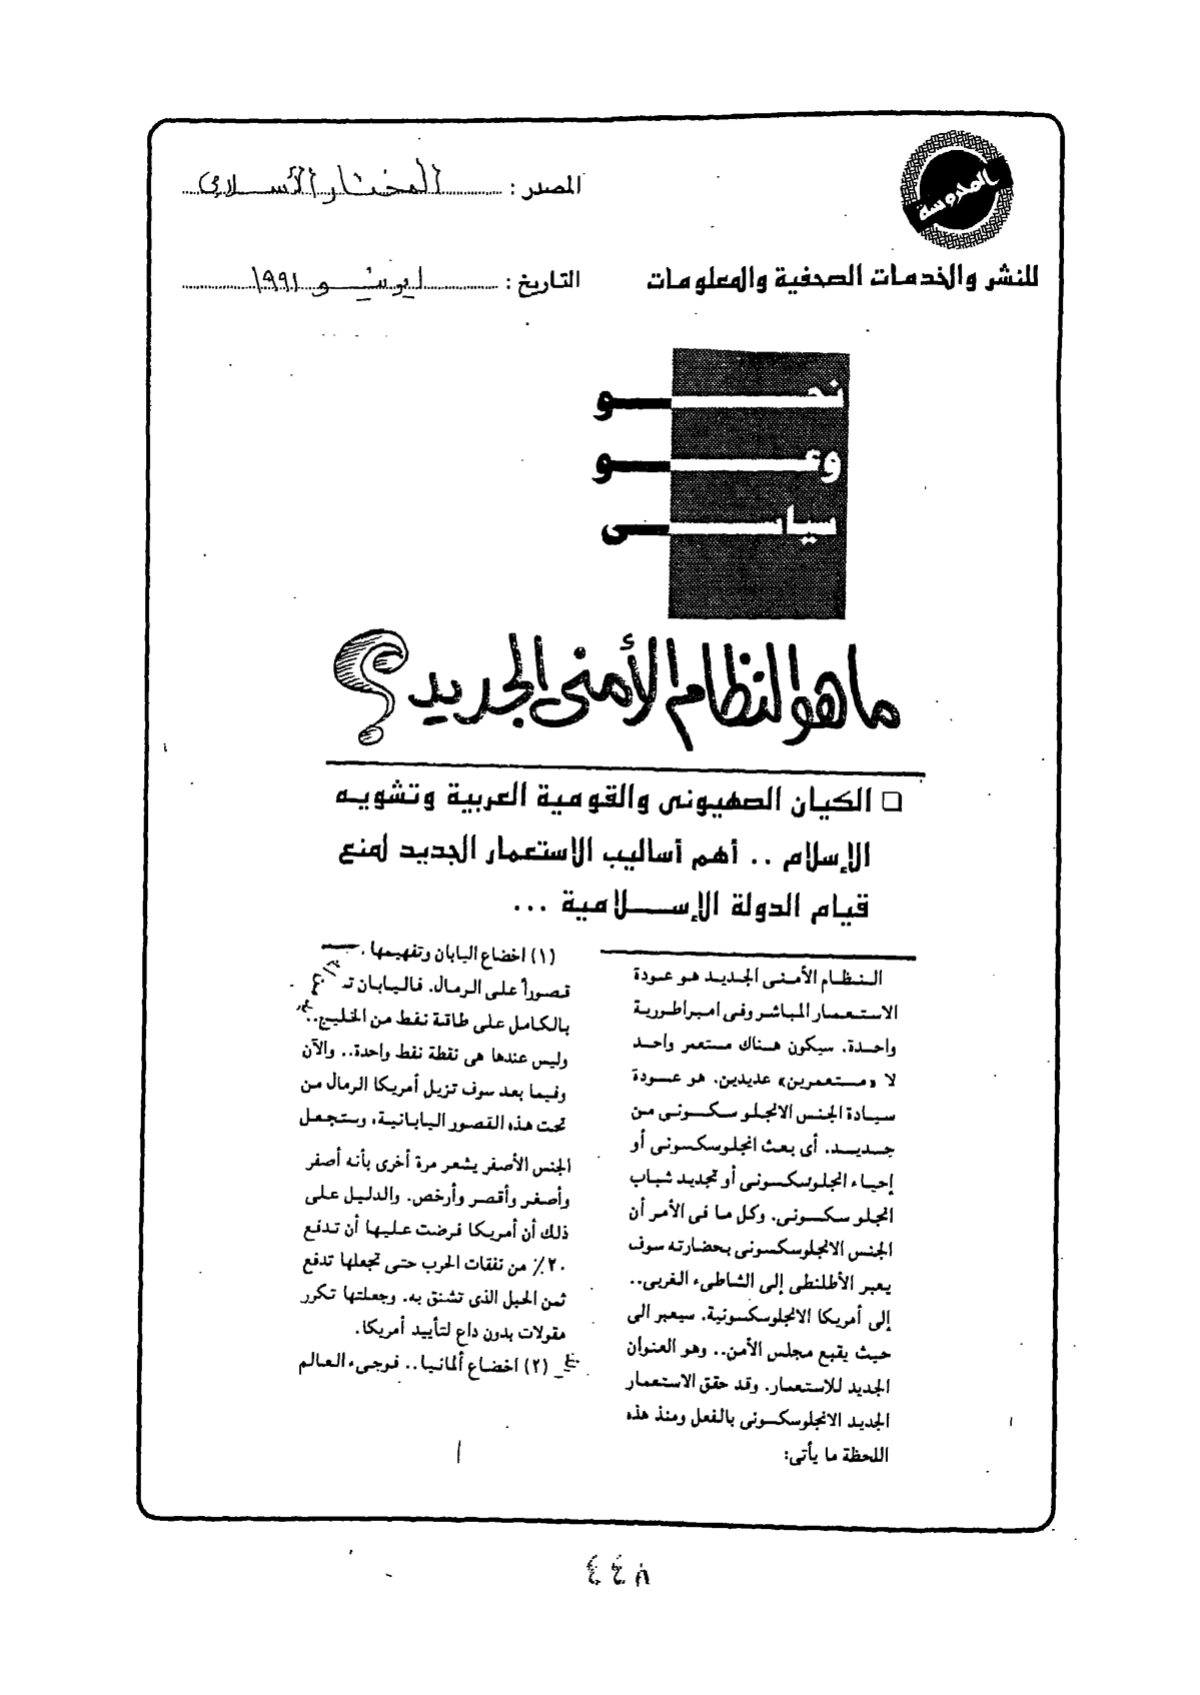 المحروسة
للنشر والخدمات الصحفية والمعلومات
المصدر : المختار الأسلامى
التاريخ : ١ يونيو ١٩٩١
نحو
وعو
سياسى
ما هو النظام الأمنى الجديد ؟
□ الكيان الصهيونى والقومية العربية وتشويه
الإسلام .. أهم أساليب الاستعمار الجديد لمنع
قيام الدولة الإسلامية ...
النظام الأمنى الجديد هو عودة
الاستعمار المباشر وفى امبراطورية
واحدة. سيكون هناك مستعمر واحد
لا «مستعمرين» عديدين. هو عودة
سيادة الجنس الانجلو سكسونى من
جديد. أى بعث انجلوسكسونى أو
إحياء انجلوسكسونى أو تجديد شباب
انجلو سكسونى. وكل ما فى الأمر أن
الجنس الانجلوسكسونى بحضارته سوف
يعبر الأطلنطى إلى الشاطىء الغربى..
إلى أمريكا الانجلوسكسونية. سيعبر الى
حيث يقبع مجلس الأمن.. وهو العنوان
الجديد للاستعمار. وقد حقق الاستعمار
الجديد الانجلوسكسونى بالفعل ومنذ هذه
اللحظة ما يأتى:
(١) اخضاع اليابان وتفهيمها
قصوراً على الرمال. فاليابان
بالكامل على طاقة نفط من الخليج..
وليس عندها هى نقطة نفط واحدة.. والآن
وفيما بعد سوف تزيل أمريكا الرمال من
تحت هذه القصور اليابانية، وستجعل
الجنس الأصفر يشعر مرة أخرى بأنه أصفر
وأصغر وأقصر وأرخص. والدليل على
ذلك أن أمريكا فرضت عليها أن تدفع
٢٠٪ من نفقات الحرب حتى تجعلها تدفع
ثمن الحبل الذى تشنق به. وجعلتها تكرر
مقولات بدون داع لتأييد أمريكا.
(٢) اخضاع ألمانيا.. فوجىء العالم
٤٤٨